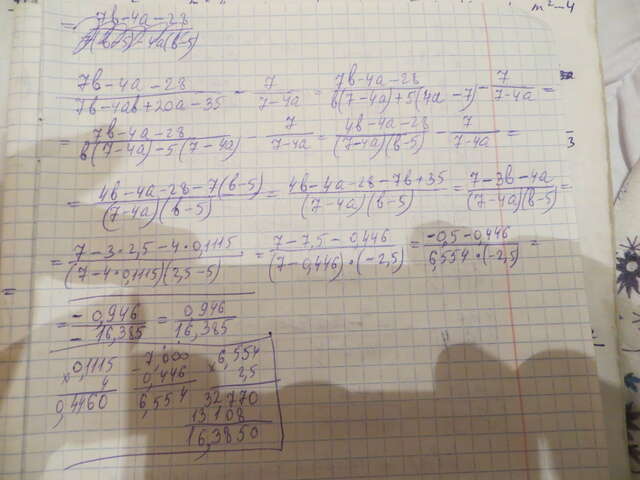 = 7b-4a-28
7b-4a-28 / 7b-4ab+20a-35 - 7 / 7-4a = 7b-4a-28 / b(7-4a)+5(4a-7) - 7 / 7-4a =
= 7b-4a-28 / b(7-4a)-5(7-4a) - 7 / 7-4a = 4b-4a-28 / (7-4a)(b-5) - 7 / 7-4a =
= 4b-4a-28-7(b-5) / (7-4a)(b-5) = 4b-4a-28-7b+35 / (7-4a)(b-5) = 7-3b-4a / (7-4a)(b-5) =
= 7-3·2,5-4·0,1115 / (7-4·0,1115)(2,5-5) = 7-7,5-0,446 / (7-0,446)·(-2,5) = -0,5-0,446 / 6,554·(-2,5) =
= - -0,946 / 16,385 = 0,946 / 16,385
0,1115 7,000 6,554
× 4 - 0,446 2,5
0,4460 6,554 32770
13108
163850
m²-4